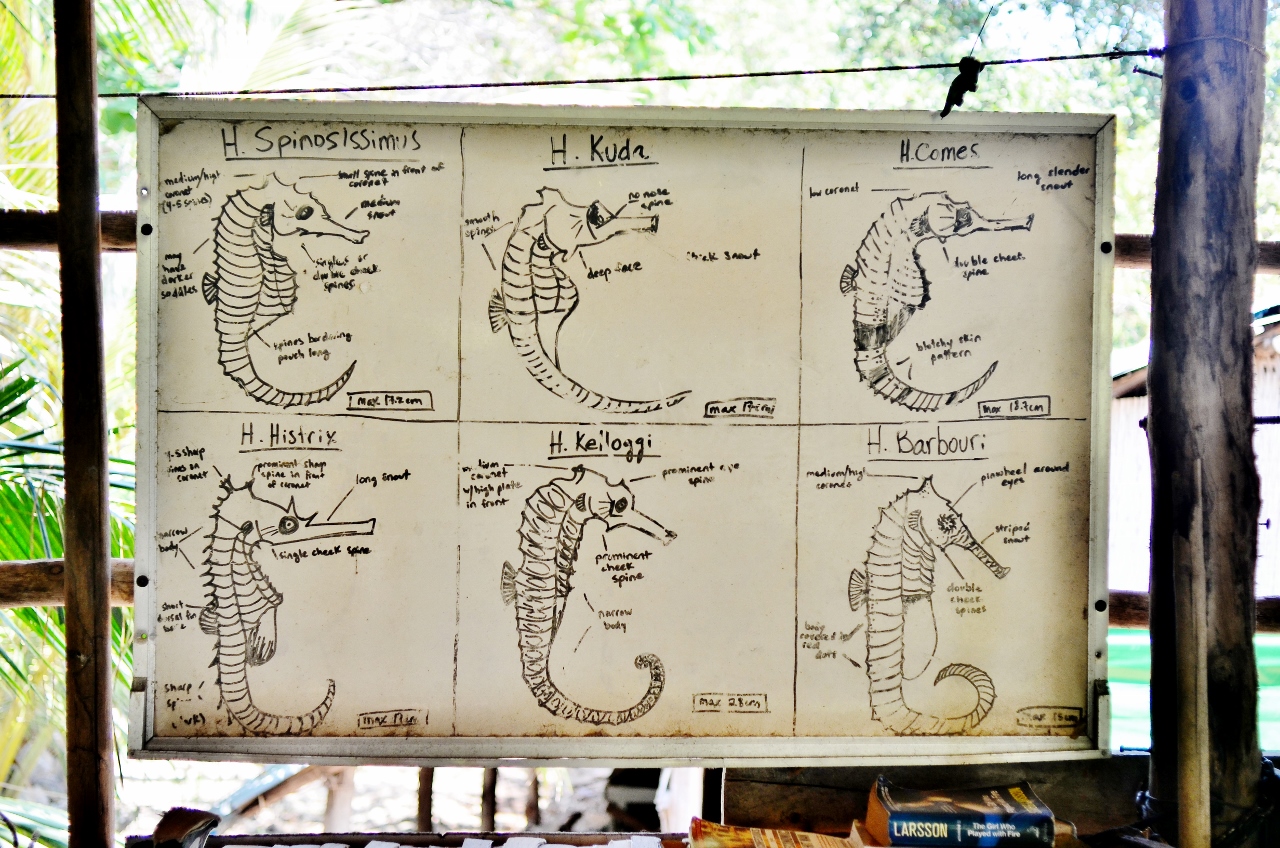 H. Spinosissimus
medium/high
coronet
(4-5 spines)
small spine in front of
coronet
medium
snout
may
have
darker
saddles
single or
double cheek
spines
spines bordering
pouch long
max 17.2cm
H. Kuda
smooth
spines
no nose
spine
deep face
thick snout
H. Comes
low coronet
long slender
snout
double cheek
spine
blotchy skin
pattern
max 18.7cm
H. Histrix
coronet
prominent sharp
spine in front
of coronet
long snout
narrow
body
single cheek spine
short
sharp
H. Kelloggi
coronet
w/high plate
in front
prominent eye
spine
prominent
cheek
spine
narrow
body
max 28cm
H. Barbouri
medium/high
coronet
pinwheel around
eyes
striped
snout
double
cheek
spines
body
covered in
red
dots
max 15cm
LARSSON
The Girl Who
Played with Fire